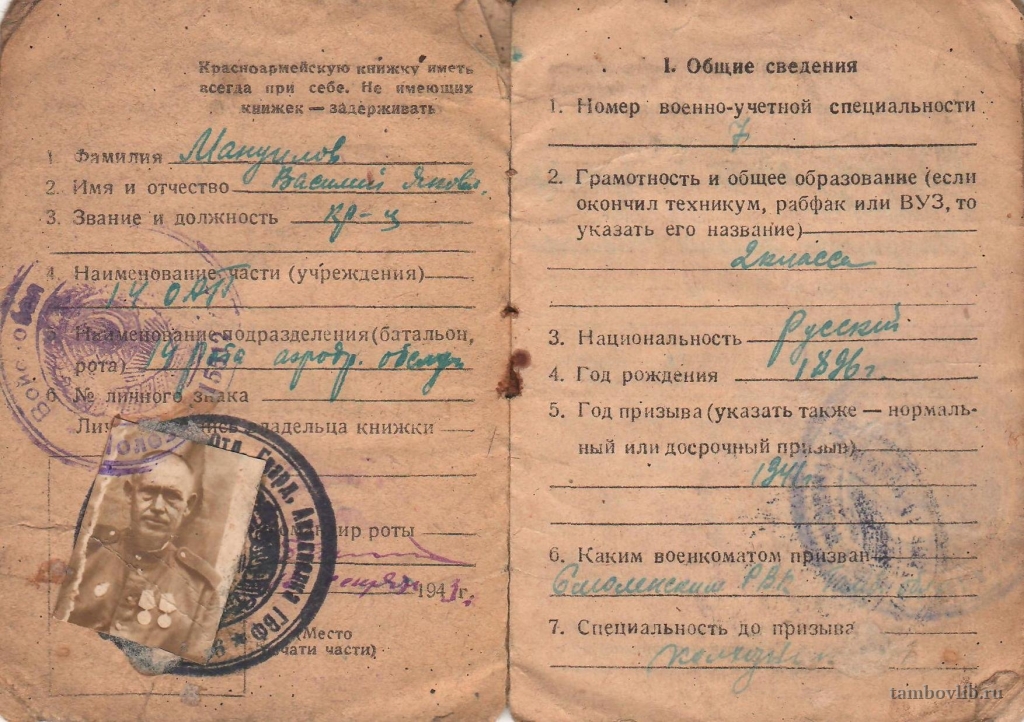 Красноармейскую книжку иметь
всегда при себе. Не имеющих
книжек — задерживать
1. Фамилия Мануилов
2. Имя и отчество Василий Яковл.
3. Звание и должность кр-ц
4. Наименование части (учреждения)
14
5. Наименование подразделения (батальон,
рота) 19 рота аэродр. обслуж
6. № личного знака
владельца книжки
роты
1943 г.
(Место
печати части)
I. Общие сведения
1. Номер военно-учетной специальности
7
2. Грамотность и общее образование (если
окончил техникум, рабфак или ВУЗ, то
указать его название)
2 класса
3. Национальность Русский
4. Год рождения 1896 г.
5. Год призыва (указать также — нормаль-
ный или досрочный призыв)
1941 г.
6. Каким военкоматом призван
Смоленским РВК
7. Специальность до призыва
tambovlib.ru